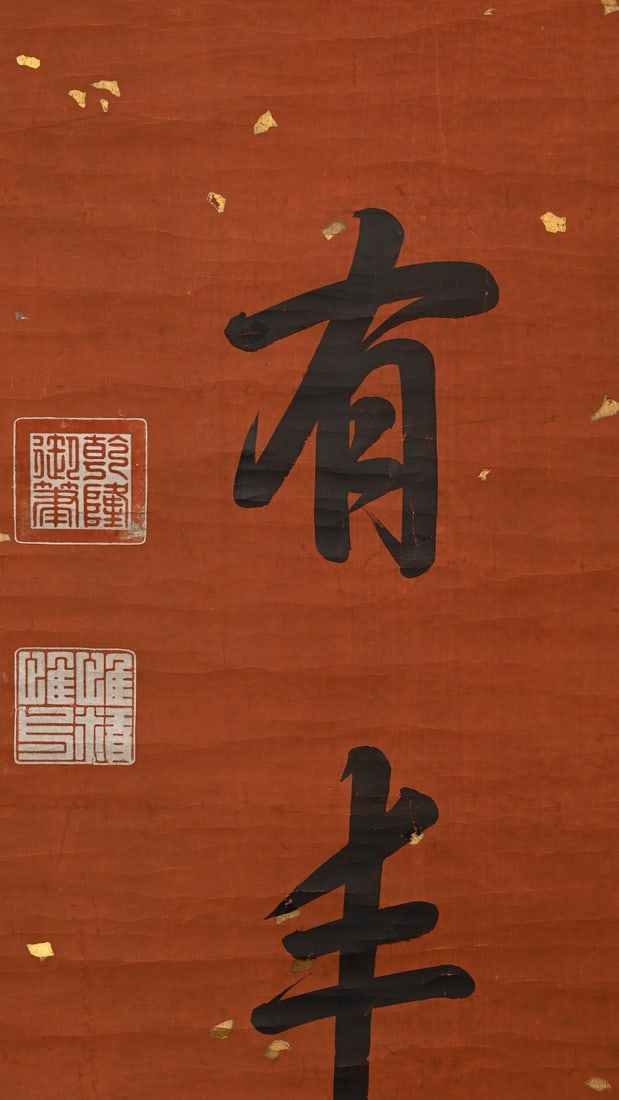 有丰
乾隆御筆
惟精惟一